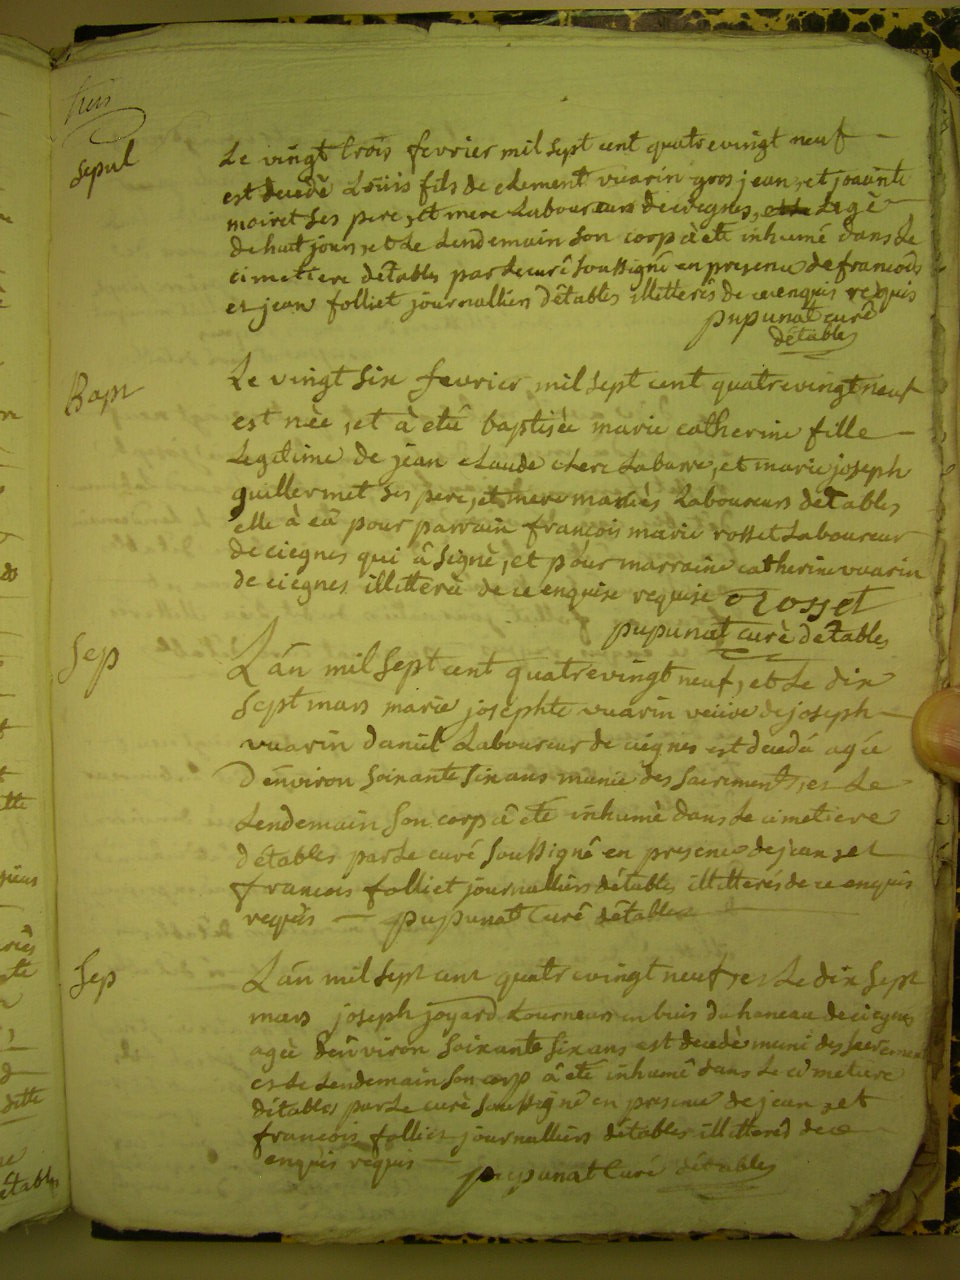 trois
sepul
Le vingt trois fevrier mil sept cent quatrevingt neuf
est decedè Loüis fils de clement vuarin gros jean, et
moiret ses pere, et mere Laboureurs de ciegnes, agè
de huit jours, et Le Lendemain son corp à été inhumé dans Le
cimetiere détables par Le curé soussigné en presence de francois
et jean folliet journalliers détables illitterés de ce enquis requis
pupunat curé
détables
Bapt
Le vingt six fevrier mil sept cent quatrevingt neuf
est nèe, et à eté baptisèe marie catherine fille
Legitime de jean claude clerc Labarre, et marie joseph
guillermet ses pere, et mere mariès Laboureurs détables
elle à eû pour parrain francois marie rosset Laboureur
de ciegnes qui â signè, et pour marraine catherine vuarin
de ciegnes illitterèe de ce enquise requise rosset
pupunat curè détables
Sep
Lân mil sept cent quatrevingt neuf, et Le dix
sept mars marie josephte vuarin veuve de joseph
vuarin daniel Laboureur de ciègnes est decedé agèe
Dénviron soixante six ans munie des sacrements, et Le
Lendemain son corp â été inhumè dans Le cimetiere
détables par Le curé soussigné en presence de jean, et
francois folliet journalliers détables illitterés de ce enquis
requis pupunat curé détables
Sep
Lân mil sept cent quatrevingt neuf, et Le dix sept
mars joseph joyard tourneur en buis du hameau de ciegnes
agèe dénviron soixante six ans est decedè muni des sacremens
et Le Lendemain son corp â été inhumé dans Le cimetiere
détables par Le curè soussigné en presence de jean, et
francois folliet journalliers détables illitterés de ce
enquis requis
pupunat Curé détables